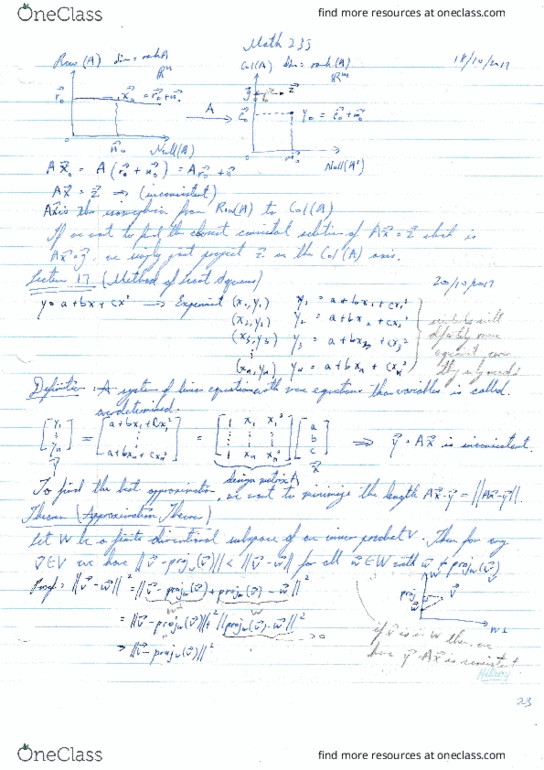 OneClass
find more resources at oneclass.com
Math 235
18/10/2017
Row(A) dim = rank A
Col(A) dim = rank(A)
A
Null(A)
A x⃗₀ = A(r⃗₀ + n⃗₀) = A r⃗₀
A x⃗ = z⃗ ⇒ (inconsistent)
from Row(A) to Col(A)
If we want to find the closest consistent solution of A x⃗ = z⃗ which is
A x⃗ = y⃗, we simply just project z⃗ on the Col(A) axis.
Lecture 17 (Method of Least Squares)
20/10/2017
y = a + bx + cx² → Experiment (x₁, y₁) y₁ = a + bx₁ + cx₁²
(x₂, y₂) y₂ = a + bx₂ + cx₂²
(x₃, y₃) y₃ = a + bx₃ + cx₃²
⋮
(xₙ, yₙ) yₙ = a + bxₙ + cxₙ²
Definition: A system of linear equations with more equations than variables is called
overdetermined.
[y₁ ⋮ yₙ] = [a + bx₁ + cx₁² ⋮ a + bxₙ + cxₙ²] = [1 x₁ x₁² ⋮ ⋮ ⋮ 1 xₙ xₙ²] [a b c] ⇒ y⃗ = A x⃗ is inconsistent.
y⃗ design matrix A x⃗
To find the best approximation, we want to minimize the length A x⃗ - y⃗ = ||A x⃗ - y⃗||.
Theorem (Approximation Theorem)
Let W be a finite dimensional subspace of an inner product V. Then for any
v⃗ ∈ V we have ||v⃗ - proj_w(v⃗)|| < ||v⃗ - w⃗|| for all w⃗ ∈ W with w⃗ ≠ proj_w(v⃗)
Proof: ||v⃗ - w⃗||² = ||v⃗ - proj_w(v⃗) + proj_w(v⃗) - w⃗||²
= ||v⃗ - proj_w(v⃗)||² + ||proj_w(v⃗) - w⃗||²
> ||v⃗ - proj_w(v⃗)||²
if y⃗ is in W then we
have y⃗ = A x⃗ is consistent
Hilroy
23
OneClass
find more resources at oneclass.com